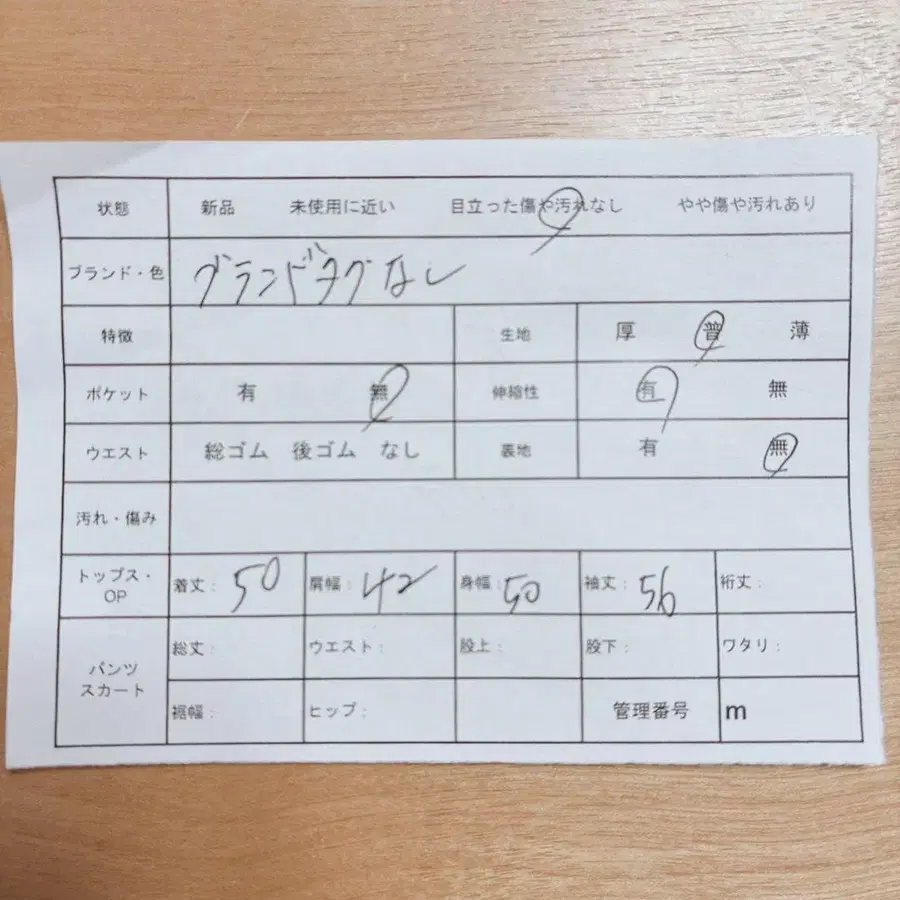 状態 新品 未使用に近い 目立った傷や汚れなし やや傷や汚れあり
ブランド・色 ブランドタグなし
特徴 生地 厚 普 薄
ポケット 有 無 伸縮性 有 無
ウエスト 総ゴム 後ゴム なし 裏地 有 無
汚れ・傷み
トップス・OP 着丈: 50 肩幅: 42 身幅: 50 袖丈: 56 裄丈:
パンツ スカート 総丈: ウエスト: 股上: 股下: ワタリ:
裾幅: ヒップ: 管理番号 m